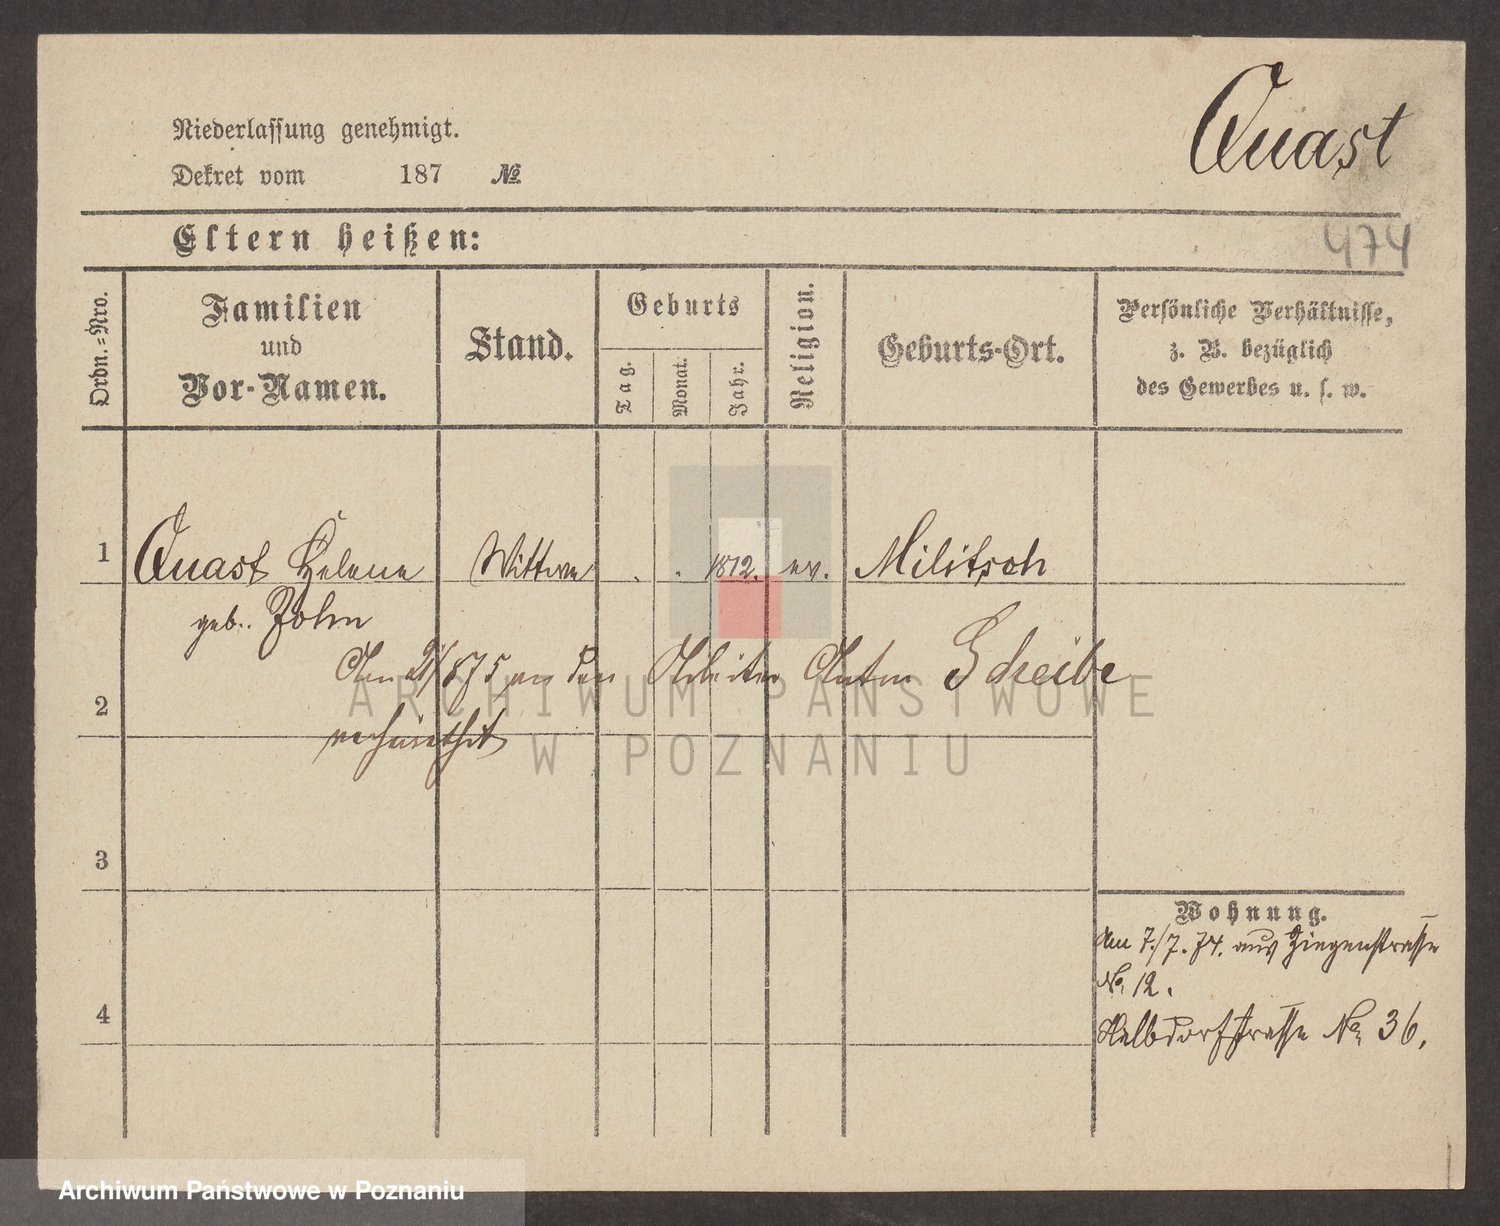 Quast
Niederlassung genehmigt.
Dekret vom 187 №
474
Eltern heißen:
Ordn.-Nro.
Familien
und
Vor-Namen.
Stand.
Geburts
Tag.
Monat.
Jahr.
Religion.
Geburts-Ort.
Persönliche Verhältnisse,
z. B. bezüglich
des Gewerbes u. s. w.
1 Quast Helene Wittwe . . 1812. ev. Militsch
geb. Zohm
Am 875 an den Arbeiter Anton Scheibe
2
verheirathet
3
Wohnung.
Am 7./7. 74. aus Ziegenstrasse
No. 12.
4
Halbdorfstrasse No. 36.
ARCHIWUM PAŃSTWOWE
W POZNANIU
Archiwum Państwowe w Poznaniu